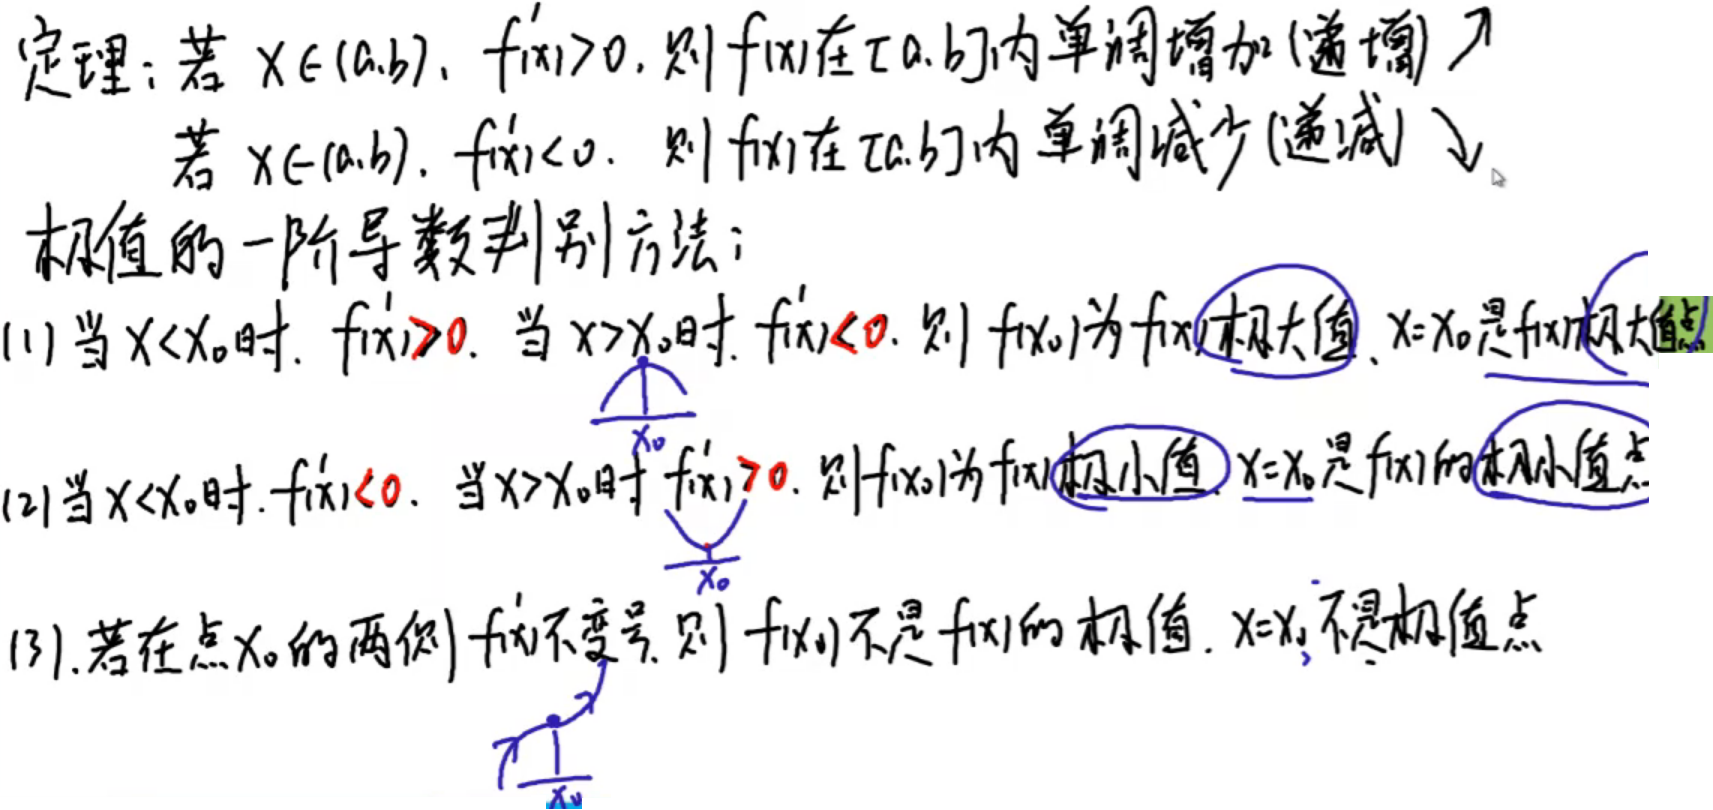 定理：若 x∈(a.b). f'(x)>0. 则 f(x)在[a.b]内单调增加(递增)↗
若 x∈(a.b). f'(x)<0. 则 f(x)在[a.b]内单调减少(递减)↘
极值的一阶导数判别方法：
(1)当x<x₀时. f'(x)>0. 当x>x₀时. f'(x)<0. 则 f(x₀)为f(x)极大值、x=x₀是f(x)极大值点
x₀
(2)当x<x₀时. f'(x)<0. 当x>x₀时 f'(x)>0. 则f(x₀)为f(x)极小值. x=x₀是f(x)的极小值点
x₀
(3).若在点x₀的两侧f'(x)不变号. 则 f(x₀)不是f(x)的极值. x=x₀不是极值点
x₀